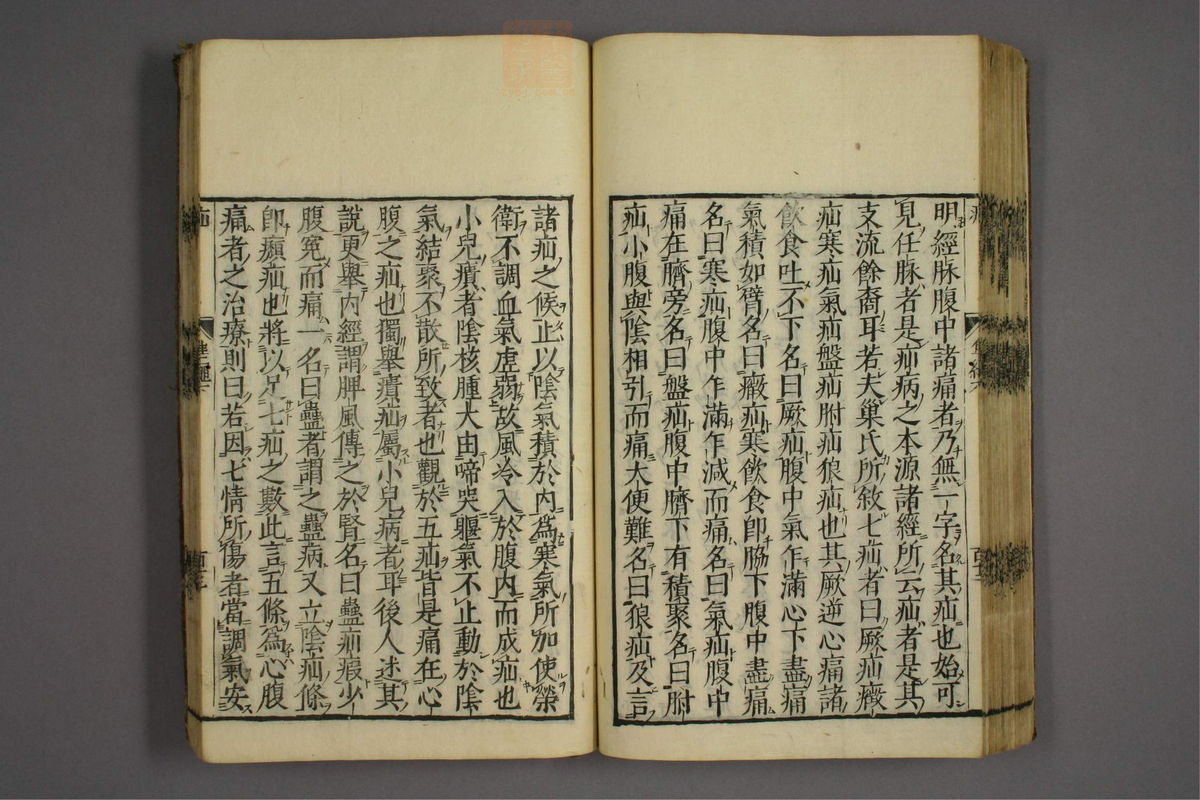 明經脉腹中諸痛者乃無一字名其疝也始可
見任脉者是疝病之本源諸經所云疝者是其
支流餘裔耳若夫巢氏所敘七疝者曰厥疝癥
疝寒疝氣疝盤疝胕疝狼疝也其厥逆心痛諸
飲食吐不下名曰厥疝腹中氣乍滿心下盡痛
氣積如臂名曰癥疝寒飲食卽脇下腹中盡痛
名曰寒疝腹中乍滿乍減而痛名曰氣疝腹中
痛在臍旁名曰盤疝腹中臍下有積聚名曰胕
疝小腹與陰相引而痛大便難名曰狼疝及言
諸疝之候止以陰氣積於内爲寒氣所加使榮
衛不調血氣虚弱故風冷入於腹内而成疝也
小兒㿉者陰核腫大由啼哭軀氣不止動於陰
氣結聚不散所致者也觀於五疝皆是痛在心
腹之疝也獨舉㿉疝屬小兒病者耳後人述其
說更舉内經謂脾風傳之於腎名曰蠱疝瘕少
腹寃而痛一名曰蠱者謂之蠱病又立陰疝條
卽癩疝也將以足七疝之數此言五條爲心腹
痛者之治療則曰若因七情所傷者當調氣安
疝